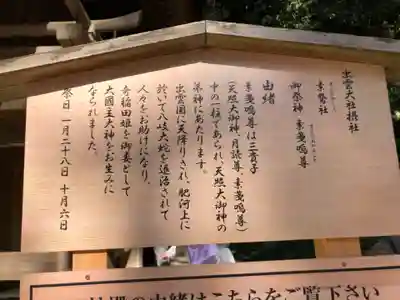 出雲大社摂社
素鵞社
御祭神 素戔嗚尊
由緒
素戔嗚尊は三貴子
(天照大御神、月読尊、素戔嗚尊)
中の一柱であられ、天照大御神の
弟神にあたります。
出雲国に天降りされ、肥河上に
於いて八岐大蛇を退治されて
人々をお助けになり、
奇稲田姫を御妻として
大國主大神をお生みに
なられました。
祭日 一月二十八日 十月六日
の由緒はこちらをご覧下さい